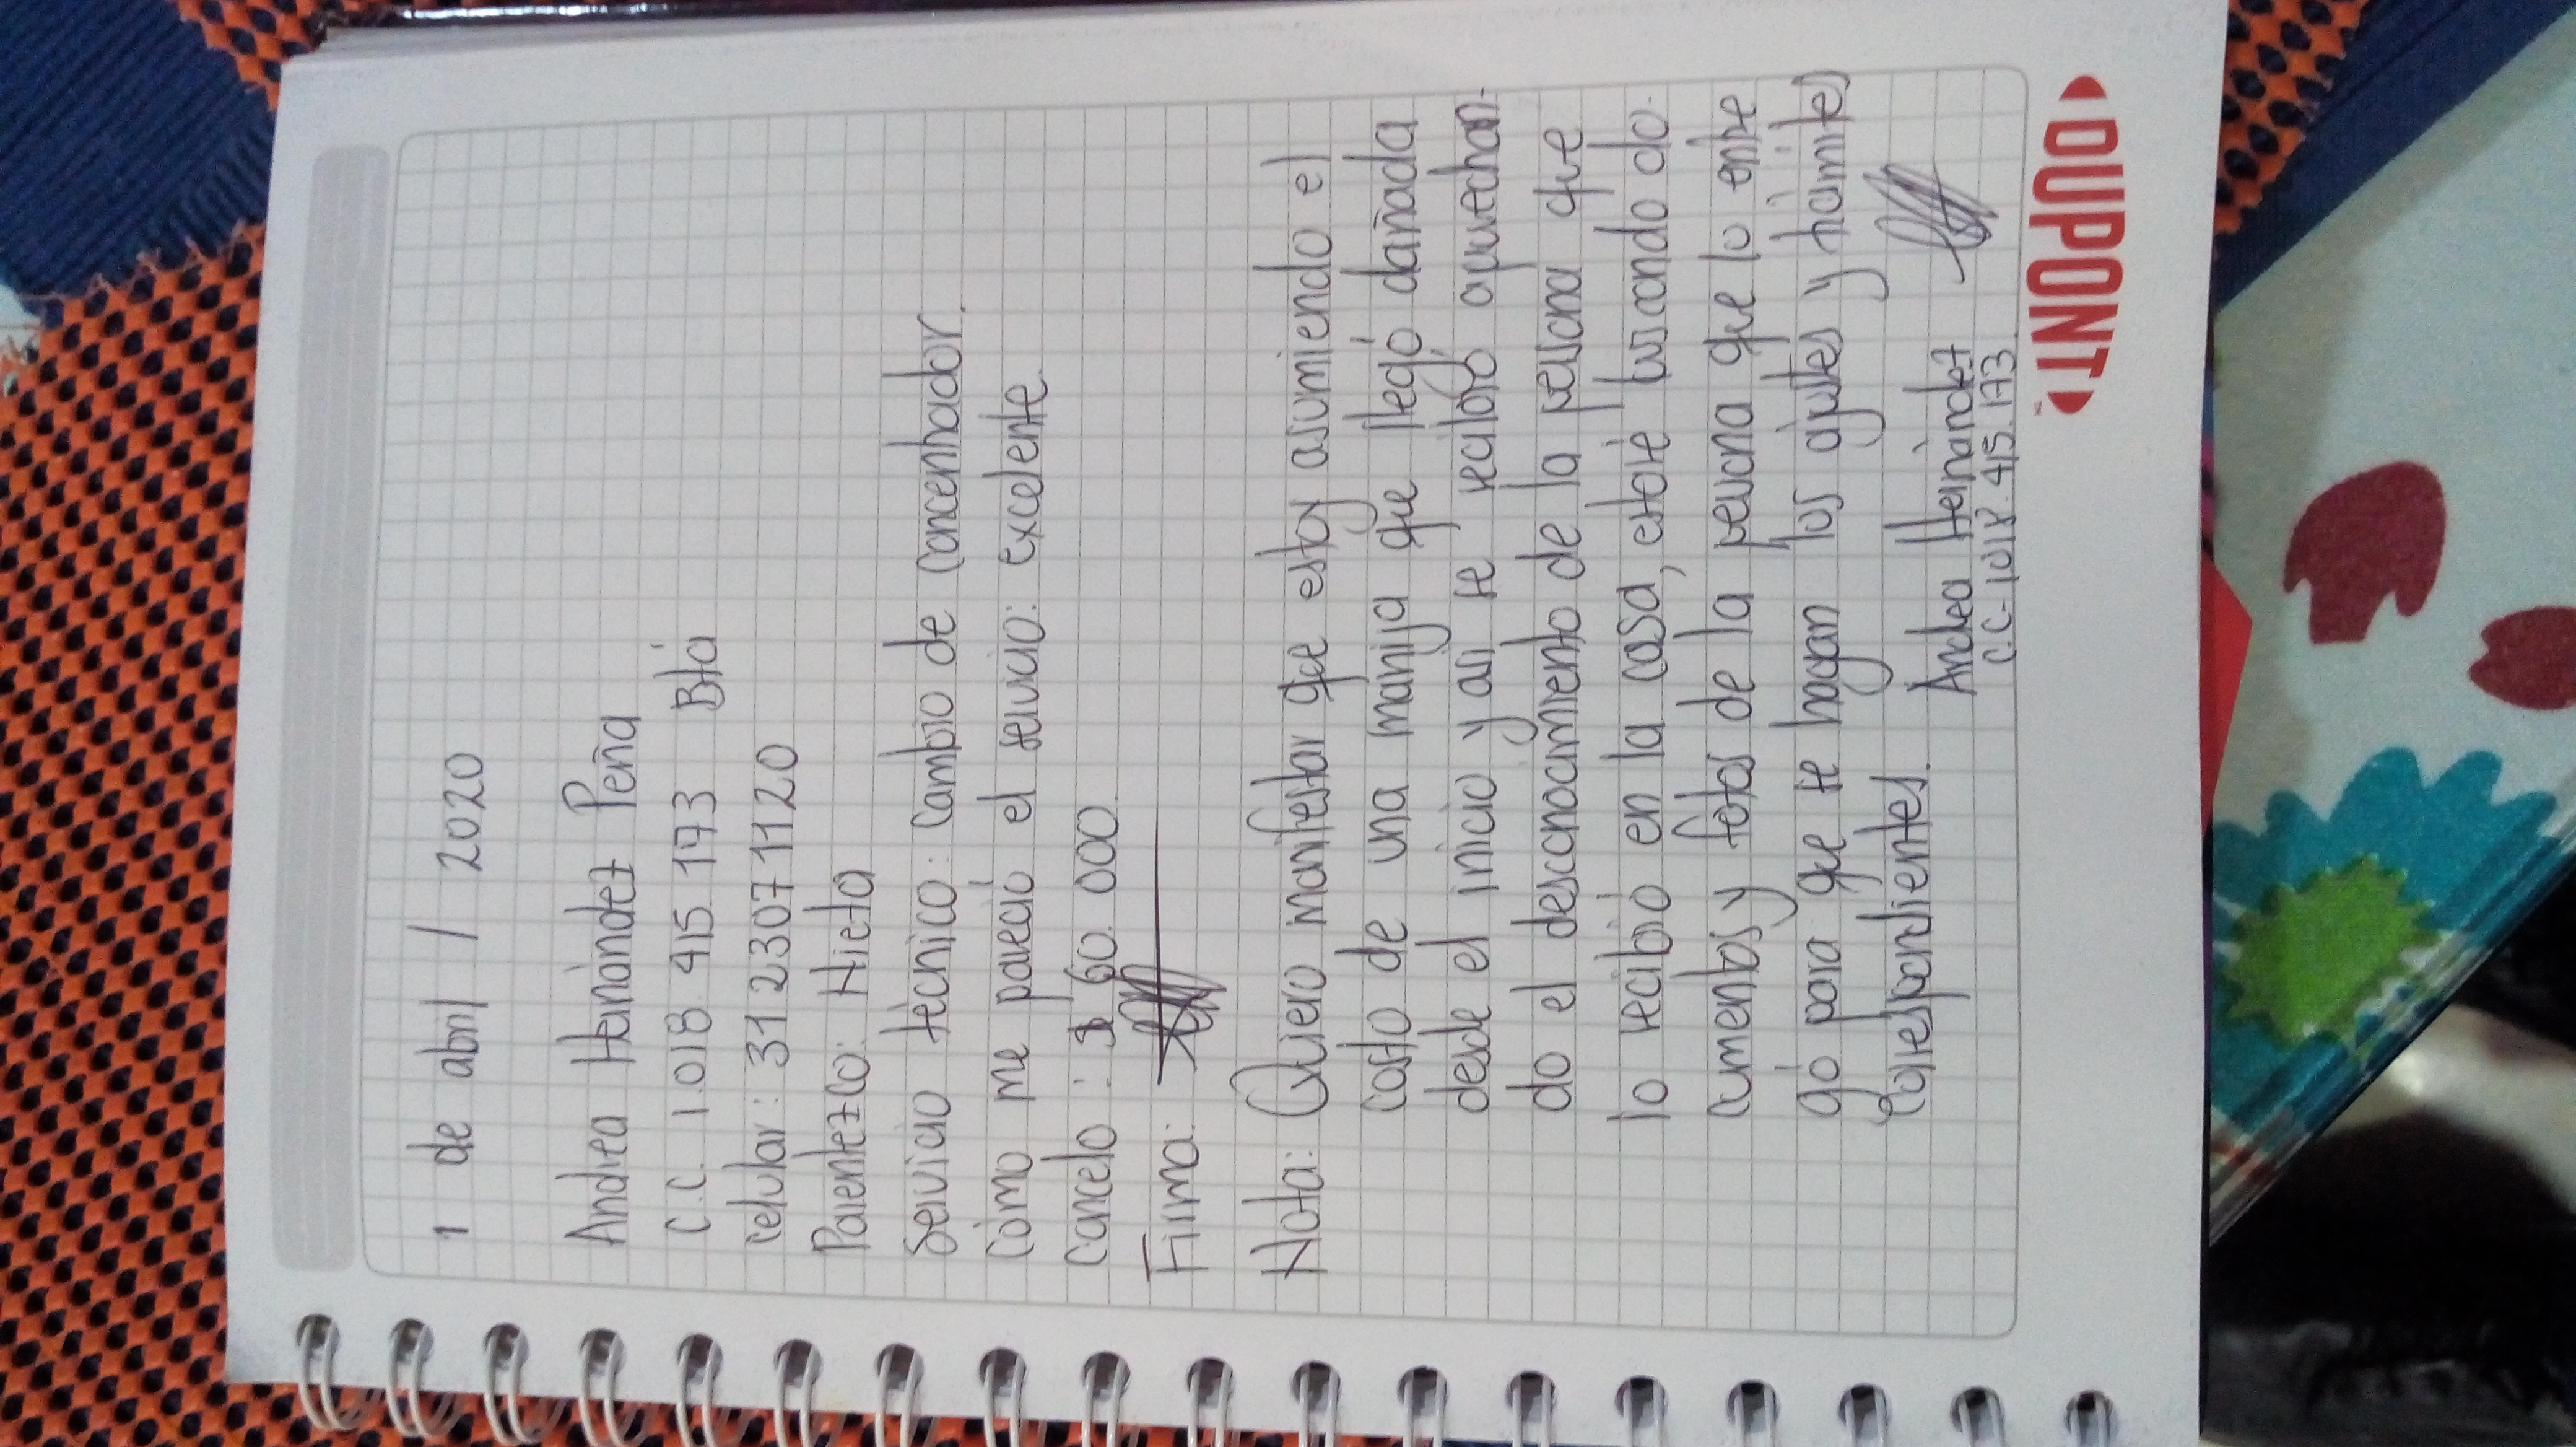 1 de abril / 2020
Andrea Hernández Peña
C.C. 1.018.415.173 Btá
Celular: 312 307 1120
Parentezco: Nieta
Servicio técnico: Cambio de concentrador.
Cómo me pareció el servicio: excelente.
Cancelo: $ 60.000.
Firma:
Nota: Quiero manifestar que estoy asumiendo el
costo de una manija que llegó dañada
desde el inicio y asi se recibió aprovechan-
do el desconocimiento de la persona que
lo recibió en la casa, estaré buscando do-
cumentos y fotos de la persona que lo entre
gó para que se hagan los ajustes y trámites
Correspondientes.
Andrea Hernández
C.C- 1018.415.173.
DUPONT